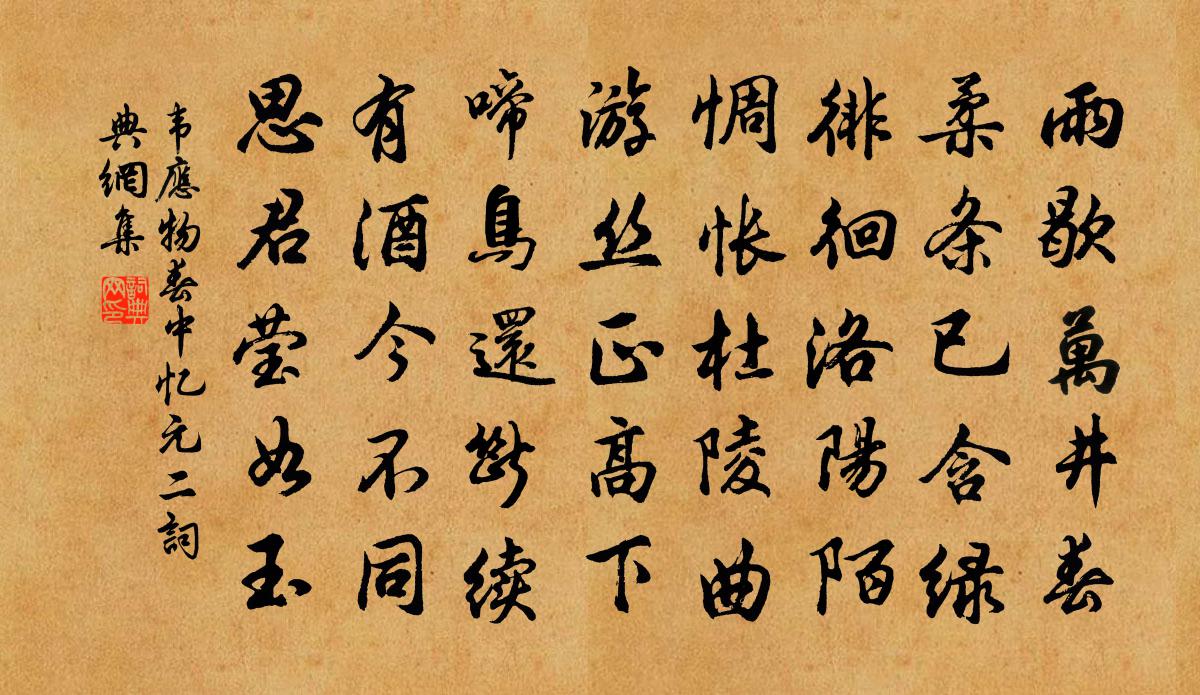 雨歇萬井春
柔条已含绿
徘徊洛陽陌
惆怅杜陵曲
游丝正高下
啼鳥還断续
有酒今不同
思君莹如玉
韦應物春中忆元二詞
典網集
詞典
网印